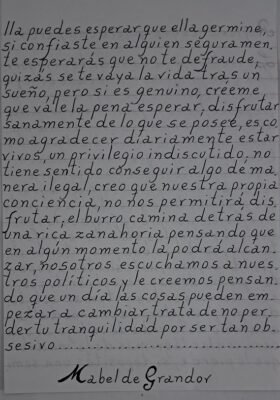 lla puedes esperar que ella germine,
si confiaste en alguien seguramen
te esperarás que no te defraude,
quizás se te vaya la vida trás un
sueño, pero si es genuino, créeme
que vále la pena esperar, disfrutar
sanamente de lo que se posée, es co
mo agradecer diariamente estar
vivos, un privilegio indiscutido, no
tiene sentido conseguir algo de ma
nera ilegal, creo que nuestra propia
conciencia, no nos permitirá dis
frutar, el burro camina detrás de
una rica zanahoria pensando que
en algún momento la podrá alcan
zar, nosotros escuchamos a nues
tros políticos y le creemos pensan
do que un día las cosas pueden em
pezar a cambiar, trata de no per
der tu tranquilidad por ser tan ob
sesivo...........................
Mabel de Grandov